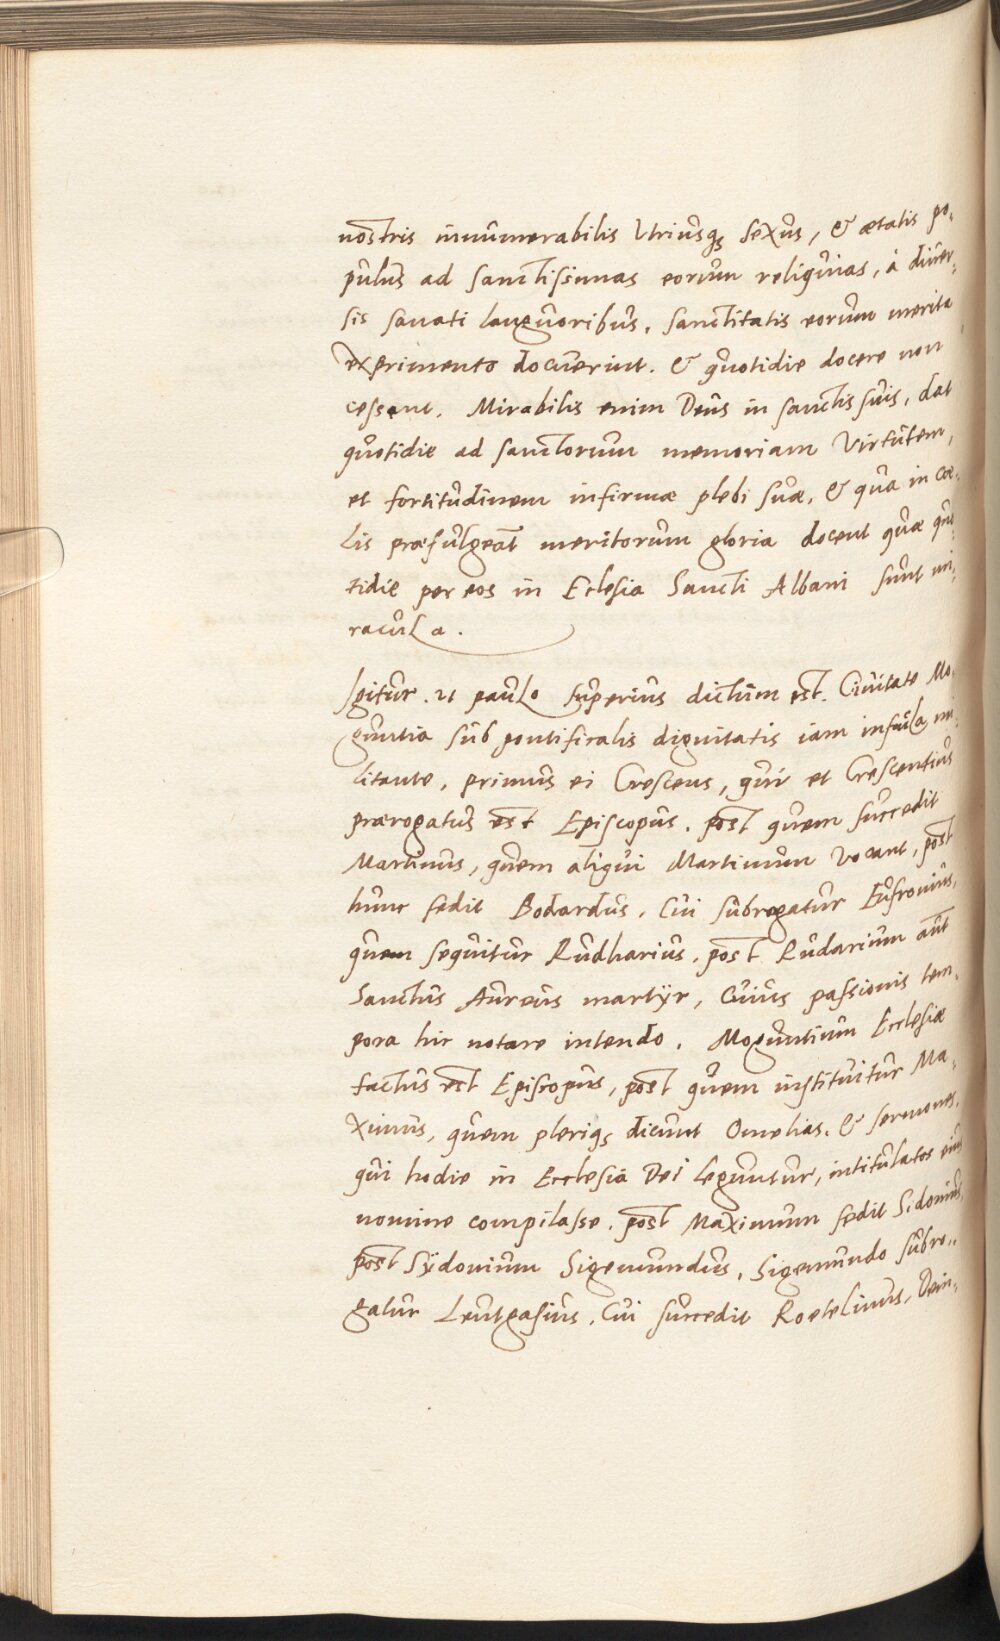 nostris innumerabilis Utriusqꝫ Sexus, & ætatis po-
pulus ad sanctissimas eorum reliquias, à diver-
sis sanati languoribus, sanctitatis eorum merita
experimento docuerunt. & quotidie docere non
cessant. Mirabilis enim Deus in sanctis suis, dat
quotidie ad sanctorum memoriam Virtutem,
et fortitudinem infirmæ plebi suæ, & qua in cœ-
lis præfulgeāt meritorum gloria docent quæ quo-
tidie per eos in Eclesia Sancti Albani sunt mi-
racula.
Igitur, ut paulo superius dictum est. Civitate Mo-
guntia sub pontificalis dignitatis iam infula mi-
litante, primus ei Crescens, qui et Crescentius
prærogatus est Episcopus. post quem succedit
Martinus, quem aliqui Martinum vocant, post
hunc sedit Bodardus, Cui subrogatur Eufronius,
quem sequitur Rudharius, post Rudarium aut
Sanctus Aureus martyr, Cuius passionis tem-
pora hic notare intendo. Moguntium Ecclesiæ
factus est Episcopus, post quem instituitur Ma-
ximus, quem pleriqꝫ dicunt Omelias, & sermones,
qui hodie in Ecclesia Dei leguntur, intitulatos eius
nomine compilasse. post Maximum sedit Sidonius,
post Sÿdonium Sigemundus, Sigemundo subro-
gatur Leutgasius, Cui succedit Roetelinus, Dein-